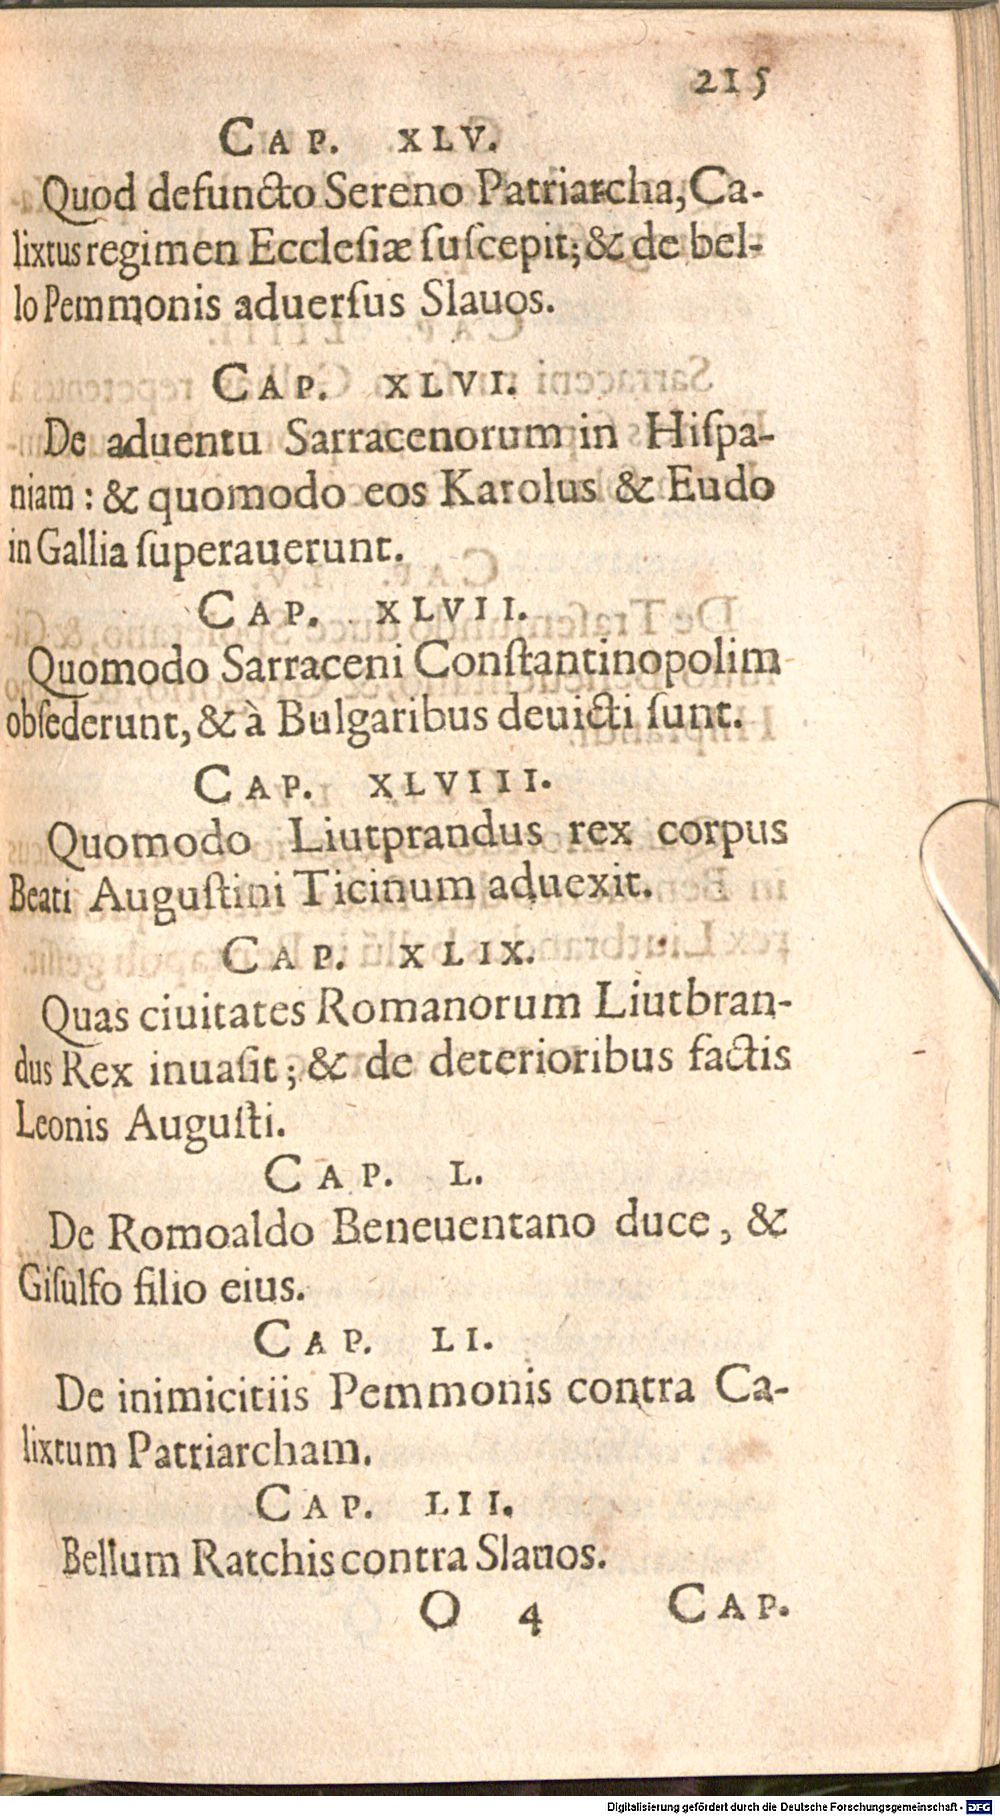 215
CAP. XLV.
Quod defuncto Sereno Patriarcha, Ca-
lixtus regimen Ecclesiæ ſuſcepit; & de bel-
lo Pemmonis aduerſus Slauos.
CAP. XLVI.
De aduentu Sarracenorum in Hiſpa-
niam: & quomodo eos Karolus & Eudo
in Gallia ſuperauerunt.
CAP. XLVII.
Quomodo Sarraceni Conſtantinopolim
obſederunt, & à Bulgaribus deuicti ſunt.
CAP. XLVIII.
Quomodo Liutprandus rex corpus
Beati Auguſtini Ticinum aduexit.
CAP. XLIX.
Quas ciuitates Romanorum Liutbran-
dus Rex inuaſit; & de deterioribus factis
Leonis Auguſti.
CAP. L.
De Romoaldo Beneuentano duce, &
Giſulfo filio eius.
CAP. LI.
De inimicitiis Pemmonis contra Ca-
lixtum Patriarcham.
CAP. LII.
Bellum Ratchis contra Slauos.
O 4 CAP.
Digitalisierung gefördert durch die Deutsche Forschungsgemeinschaft - DFG